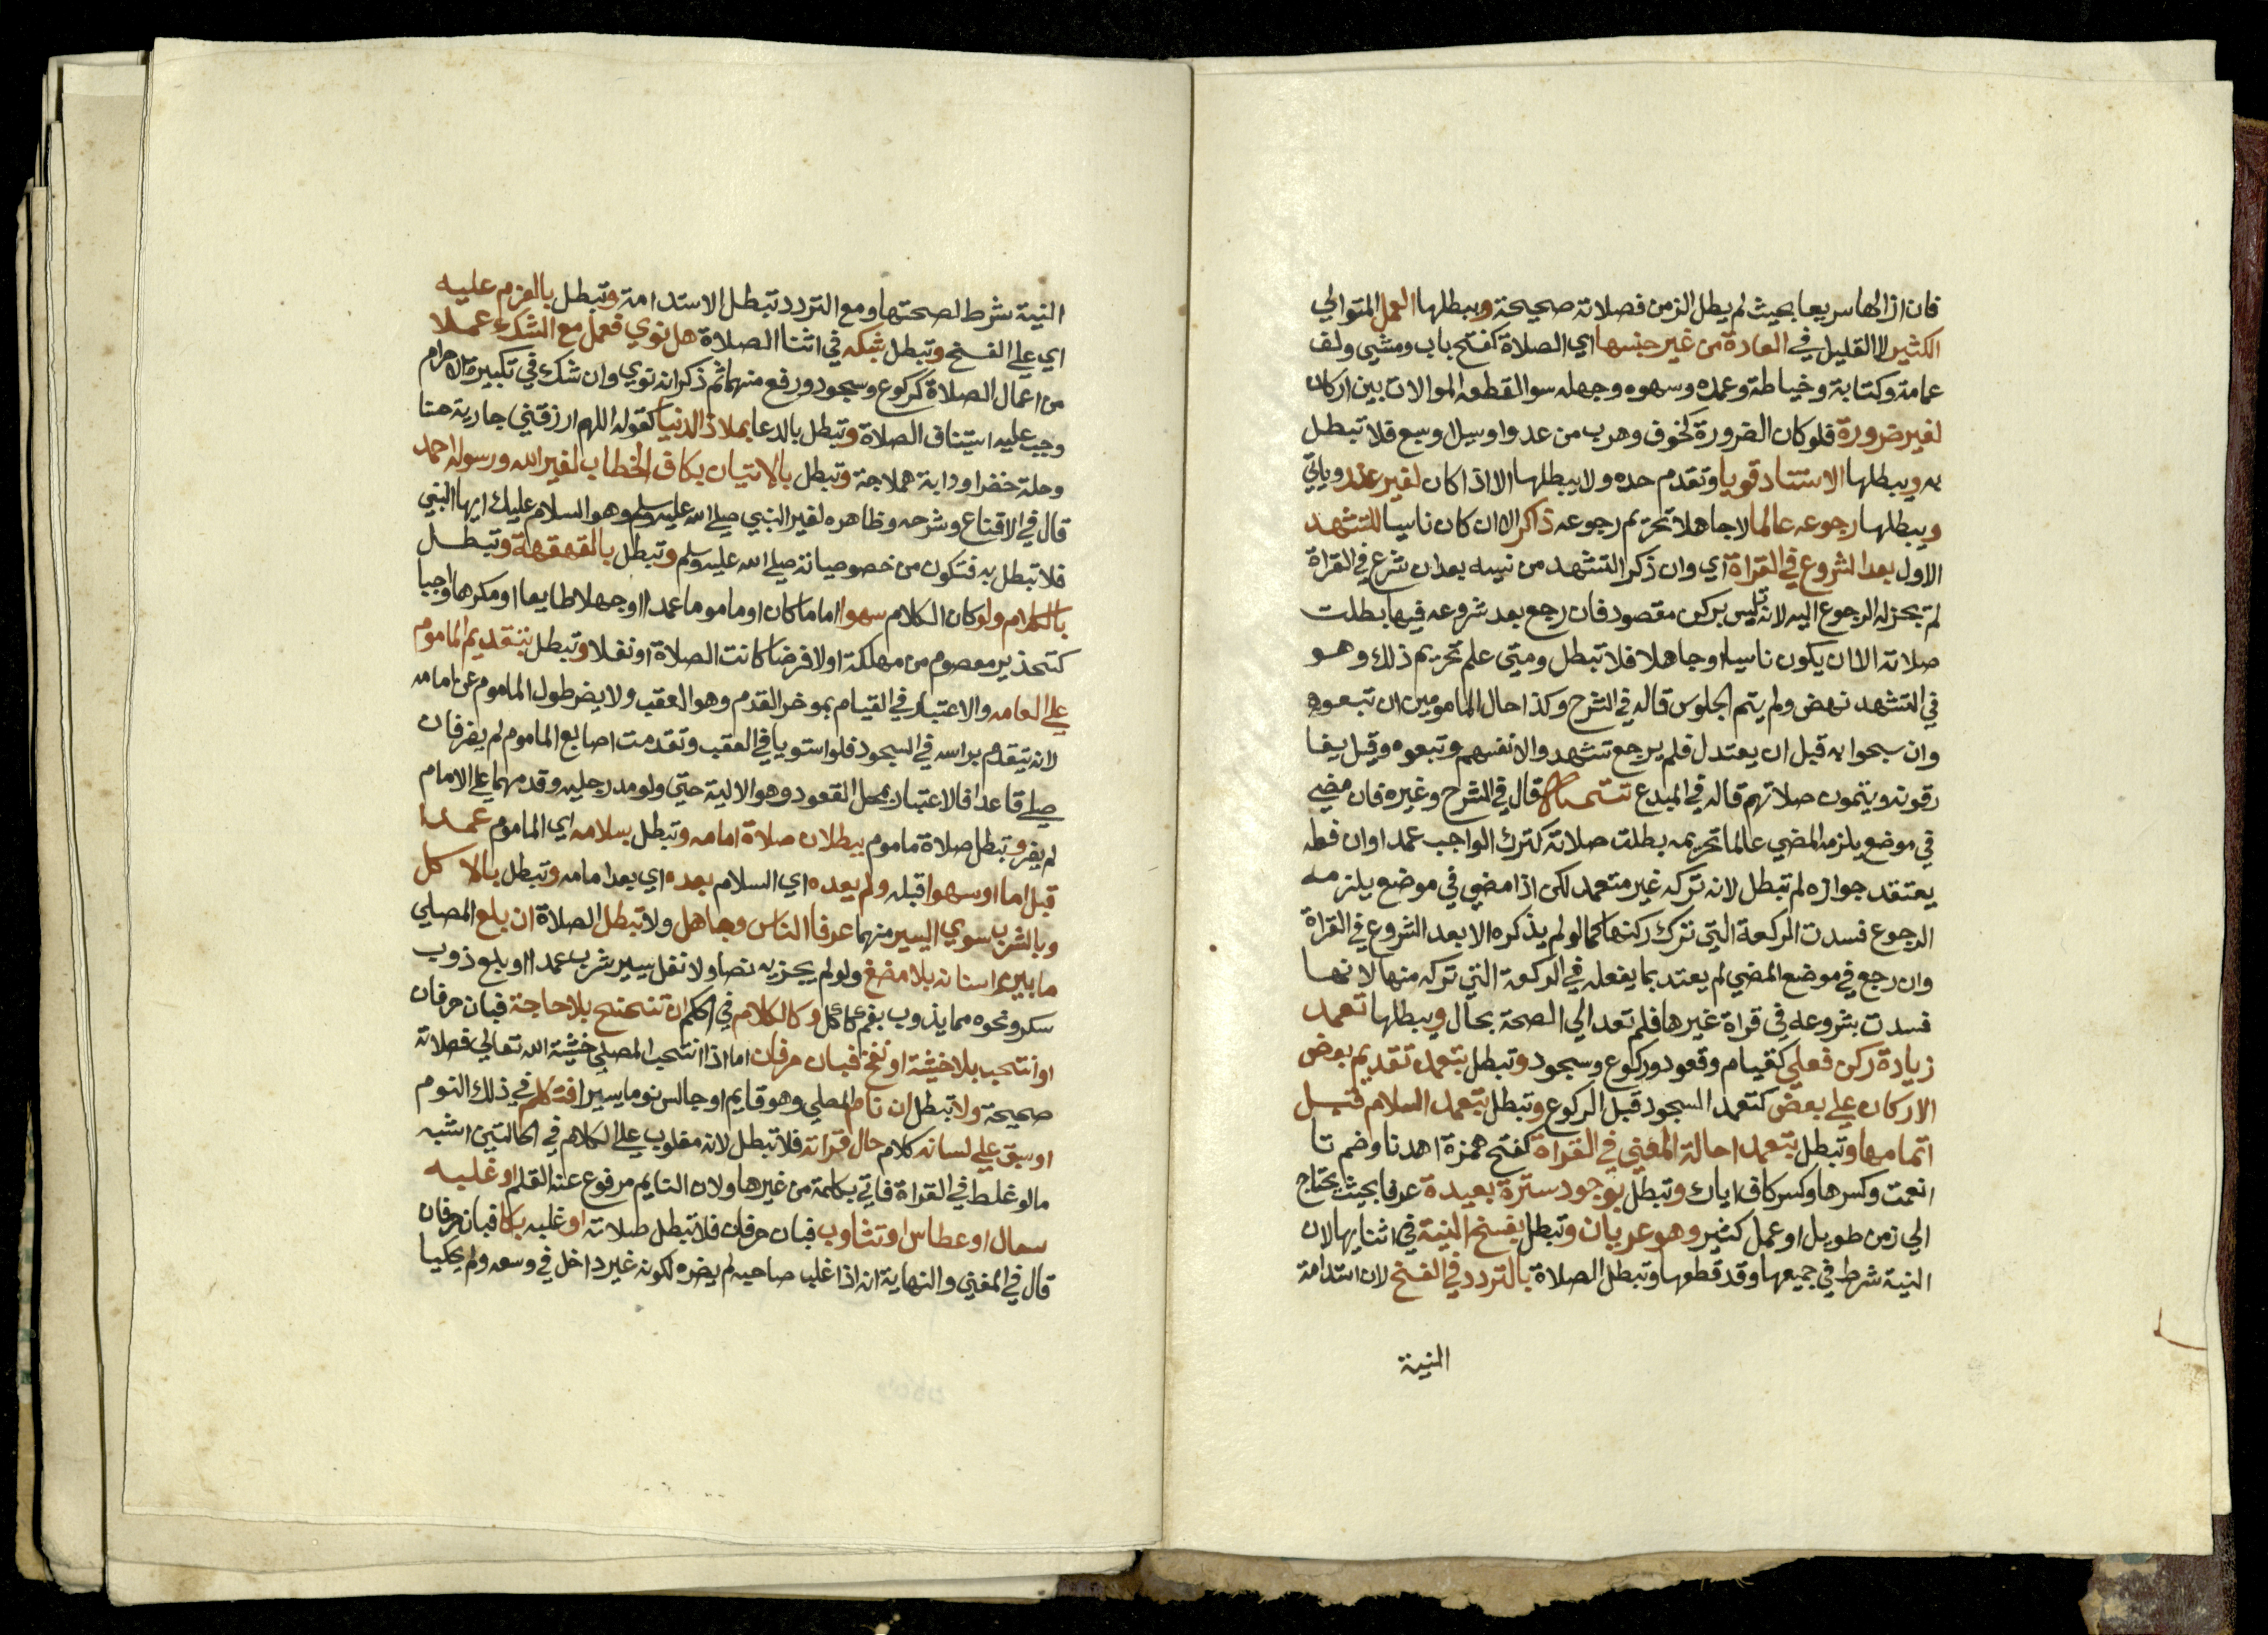 فان ازالها سريعا بحيث لم يطل الزمن فصلاته صحيحة ويبطلها العمل المتوالي
الكثير لا القليل في العادة من غير جنسها اي الصلاة كفتح باب ومشي ولف
عمامة وكتابة وخياطة وعمده وسهوه وجهله سوا لقطعه الموالات بين اركان
لغير ضرورة فلو كان الضرورة كخوف وهرب من عدو او سيل او سبع فلا تبطل
به ويبطلها الاستناد قويا وتقدم حده ولا يبطلها الا اذا كان لغير عذر وياتي
ويبطلها رجوعه عالما لا جاهلا تحريم رجوعه ذاكرا لا ان كان ناسيا للتشهد
الاول بعد الشروع في القراة اي وان ذكر التشهد من نسيه بعد ان شرع في القراة
لم يجز له الرجوع اليه لانه تلبس بركن مقصود فان رجع بعد شروعه فيها بطلت
صلاته الا ان يكون ناسيا او جاهلا فلا تبطل ومتي علم تحريم ذلك وهو
في التشهد نهض ولم يتم الجلوس قاله في الشرح وكذا حال المامومين ان تبعوه
وان سبحوا به قبل ان يعتدل فلم يرجع تشهدوا لانفسهم وتبعوه وقيل يفا
رقونه ويتمون صلاتهم قاله في المبدع تتمـــة قال في الشرح وغيره فان مضي
في موضع يلزمه المضي عالما تحريمه بطلت صلاته كترك الواجب عمدا وان فعله
يعتقد جوازه لم تبطل لانه تركه غير متعمد لكن اذا مضي في موضع يلزمه
الرجوع فسدت الركعة التي ترك ركنها كما لو لم يذكره الا بعد الشروع في القراة
وان رجع في موضع المضي لم يعتد بما يفعله في الركعة التي تركه منها لانها
فسدت بشروعه في قراة غيرها فلم تعد الي الصحة بحال ويبطلها تعمد
زيادة ركن فعلي كقيام وقعود وركوع وسجود وتبطل بتعمد تقديم بعض
الاركان علي بعض كتعمد السجود قبل الركوع وتبطل بتعمد السلام قبل
اتمامها وتبطل بتعمد احالة المعني في القراة كفتح همزة اهدنا وضم تا
انعمت وكسرها وكسر كاف اياك وتبطل بوجود سترة بعيدة عرفا بحيث يحتاج
الي زمن طويل او عمل كثير وهو عريان وتبطل بفسخ النية في اثنايها لان
النية شرط في جميعها وقد قطعها وتبطل الصلاة بالتردد في الفسخ لان استدامة
النية
النية شرط لصحتها ومع التردد تبطل الاستدامة وتبطل بالعزم عليه
اي علي الفسخ وتبطل بشكه في اثنا الصلاة هل نوي فعمل مع الشك عملا
من اعمال الصلاة كركوع وسجود ورفع منهما ثم ذكر انه نوي وان شك في تكبيرة الاحرام
وجب عليه استيناف الصلاة وتبطل بالدعا بملاذ الدنيا كقوله اللهم ارزقني جارية حسنا
وحلة خضرا ودابة هملاجة وتبطل بالاتيان بكاف الخطاب لغير الله ورسوله احمد
قال في الاقناع وشرحه وظاهره لغير النبي صلي الله عليه وسلم وهو السلام عليك ايها النبي
فلا تبطل به فتكون من خصوصياته صلي الله عليه وسلم وتبطل بالقهقهة وتبطـــل
بالكلام ولو كان الكلام سهوا اماما كان او ماموما عمدا او جهلا طايعا او مكرها واجبا
كتحذير معصوم من مهلكة او لا فرضا كانت الصلاة او نفلا وتبطل بتقديم الماموم
علي امامه والاعتبار في القيام بموخر القدم وهو العقب ولا يضر طول الماموم عن امامه
لانه يتقدم براسه في السجود فلو استويا في العقب وتقدمت اصابع الماموم لم يضر فان
صلي قاعدا فالاعتبار بمحل القعود وهو الالية حتي ولو مد رجليه وقدمهما علي الامام
لم يضر وتبطل صلاة ماموم ببطلان صلاة امامه وتبطل بسلامه اي الماموم عمدا
قبل امامه او سهوا قبله ولم يعده اي السلام بعده اي بعد امامه وتبطل بالاكل
وبالشرب سوي اليسير منهما عرفا لناس وجاهل ولا تبطل الصلاة ان بلع المصلي
ما بين اسنانه بلا مضغ ولو لم يجز به نصا ولا نفل بيسير شرب عمدا او بلع ذوب
سكر ونحوه مما يذوب بفم كاكل وكالكلام في الحكم ان تنحنح بلا حاجة فبان حرفان
او انتحب بلا خشية او نفخ فبان حرفان اما اذا انتحب المصلي خشية الله تعالي فصلاته
صحيحة ولا تبطل ان نام المصلي وهو قايم او جالس نوما يسيرا فتكلم في ذلك النوم
او سبق علي لسانه كلام حال قراته فلا تبطل لانه مغلوب علي الكلام في الحالتين اشبه
مالو غلط في القراة فاتي بكلمة من غيرها ولان النايم مرفوع عنه القلم او غلبه
سعال او عطاس او تثاوب فبان حرفان فلا تبطل صلاته او غلبه بكا فبان حرفان
قال في المغني والنهاية انه اذا غلب صاحبه لم يضره لكونه غير داخل في وسعه ولم يحكيا